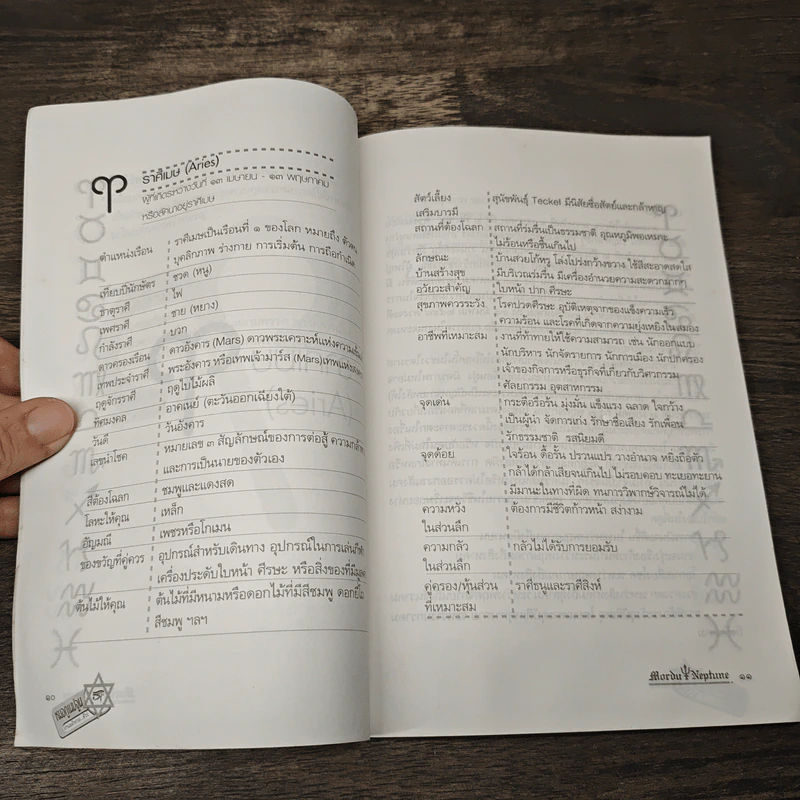 ราศีเมษ (Aries)
ผู้ที่เกิดระหว่างวันที่ ๑๓ เมษายน - ๑๓ พฤษภาคม
หรือลัคนาอยู่ราศีเมษ
ตำแหน่งเรือน ราศีเมษเป็นเรือนที่ ๑ ของโลก หมายถึง ตัวตน
บุคลิกภาพ ร่างกาย การเริ่มต้น การถือกำเนิด
เทียบปีนักษัตร ชวด (หนู)
ธาตุราศี ไฟ
เพศราศี ชาย (หยาง)
กำลังราศี บวก
ดาวครองเรือน ดาวอังคาร (Mars) ดาวพระเคราะห์แห่ง
เทพประจำราศี พระอังคาร หรือเทพเจ้ามาร์ส (Mars)
ฤดูจักรราศี ฤดูใบไม้ผลิ
ทิศมงคล อาคเนย์ (ตะวันออกเฉียงใต้)
วันดี วันอังคาร
เลขนำโชค หมายเลข ๓ สัญลักษณ์ของการต่อสู้
และการเป็นนายของตัวเอง
สีต้องโฉลก ชมพูและแดงสด
โลหะให้คุณ เหล็ก
อัญมณี เพชรหรือโกเมน
ของขวัญที่คู่ควร อุปกรณ์สำหรับเดินทาง อุปกรณ์ในการเล่นกีฬา
เครื่องประดับใบหน้า ศีรษะ หรือสิ่งของที่มี
ต้นไม้ให้คุณ ต้นไม้ที่มีหนามหรือดอกไม้ที่มีสีชมพู
สีชมพู ฯลฯ
๑๐
สัตว์เลี้ยง สุนัขพันธุ์ Teckel มีนิสัยซื่อสัตย์และกล้าหาญ
เสริมบารมี
สถานที่ต้องโฉลก สถานที่ร่มรื่นเป็นธรรมชาติ อุณหภูมิพอเหมาะ
ไม่ร้อนหรือชื้นเกินไป
ลักษณะ บ้านสวยโก้หรู โล่งโปร่งกว้างขวาง ใช้สีสะอาดสดใส
บ้านสร้างสุข มีบริเวณร่มรื่น มีเครื่องอำนวยความสะดวกมากๆ
อวัยวะสำคัญ ใบหน้า ปาก ศีรษะ
สุขภาพควรระวัง โรคปวดศีรษะ อุบัติเหตุจากของแข็งความเร็ว
ความร้อน และโรคที่เกิดจากความยุ่งเหยิงในสมอง
อาชีพที่เหมาะสม งานที่ท้าทายให้ใช้ความสามารถ เช่น นักออกแบบ
นักบริหาร นักจัดรายการ นักการเมือง นักปกครอง
เจ้าของกิจการหรือธุรกิจที่เกี่ยวกับวิศวกรรม
ศัลยกรรม อุตสาหกรรม
จุดเด่น กระตือรือร้น มุ่งมั่น แข็งแรง ฉลาด ใจกว้าง
เป็นผู้นำ จัดการเก่ง รักษาชื่อเสียง รักเพื่อน
รักธรรมชาติ รสนิยมดี
จุดด้อย ใจร้อน ดื้อรั้น ปรวนแปร วางอำนาจ หยิ่งถือตัว
กล้าได้กล้าเสียจนเกินไป ไม่รอบคอบ ทะเยอทะยาน
มีมานะในทางที่ผิด ทนการวิพากษ์วิจารณ์ไม่ได้
ความหวัง ต้องการมีชีวิตก้าวหน้า สง่างาม
ในส่วนลึก
ความกลัว กลัวไม่ได้รับการยอมรับ
ในส่วนลึก
คู่ครอง/หุ้นส่วน ราศีธนูและราศีสิงห์
ที่เหมาะสม
Mordu Neptune ๑๑